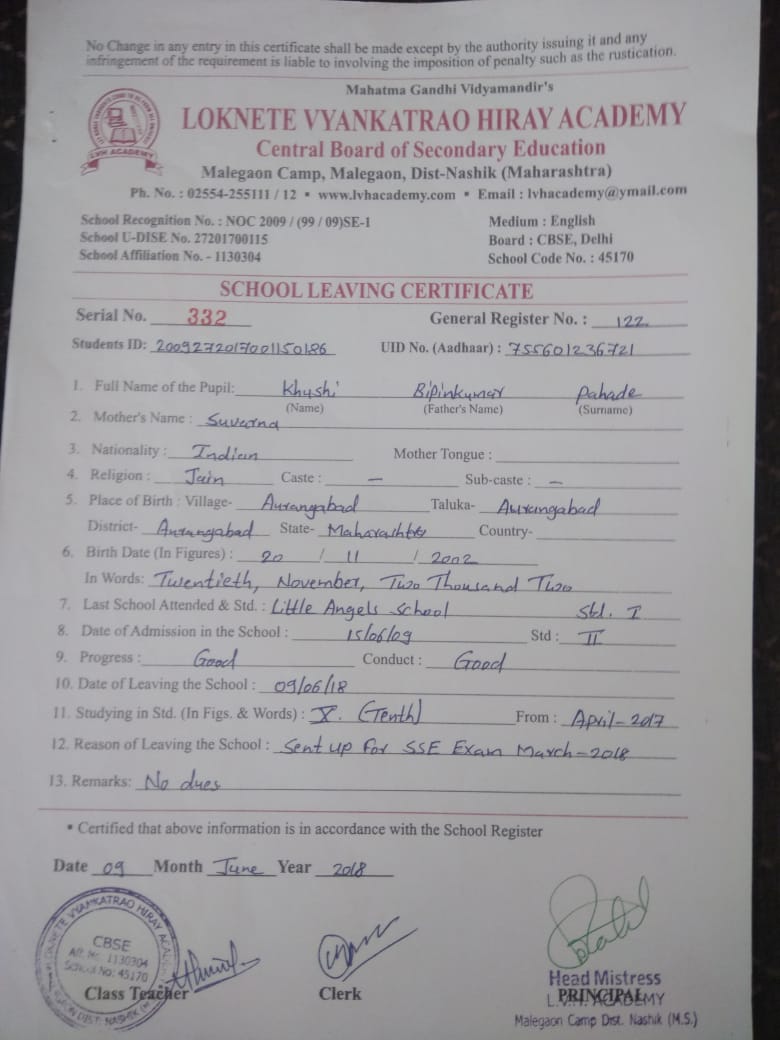 No Change in any entry in this certificate shall be made except by the authority issuing it and any
infringement of the requirement is liable to involving the imposition of penalty such as the rustication.
Mahatma Gandhi Vidyamandir's
LOKNETE VYANKATRAO HIRAY ACADEMY
LVH ACADEMY
Central Board of Secondary Education
Malegaon Camp, Malegaon, Dist-Nashik (Maharashtra)
Ph. No. : 02554-255111 / 12 • www.lvhacademy.com • Email : lvhacademy@ymail.com
School Recognition No. : NOC 2009 / (99 / 09)SE-1 Medium : English
School U-DISE No. 27201700115 Board : CBSE, Delhi
School Affiliation No. - 1130304 School Code No. : 45170
SCHOOL LEAVING CERTIFICATE
Serial No. 332 General Register No. : 122
Students ID: 2009272017001150186 UID No. (Aadhaar) : 755601236721
1. Full Name of the Pupil: Khushi Bipinkumar Pahade
(Name) (Father's Name) (Surname)
2. Mother's Name : Suvarna
3. Nationality : Indian Mother Tongue :
4. Religion : Jain Caste : — Sub-caste : —
5. Place of Birth : Village- Aurangabad Taluka- Aurangabad
District- Aurangabad State- Maharashtra Country-
6. Birth Date (In Figures) : 20 / 11 / 2002
In Words: Twentieth, November, Two Thousand Two
7. Last School Attended & Std. : Little Angels School Std. I
8. Date of Admission in the School : 15/06/09 Std : II
9. Progress : Good Conduct : Good
10. Date of Leaving the School : 09/06/18
11. Studying in Std. (In Figs. & Words) : X. (Tenth) From : April-2017
12. Reason of Leaving the School : Sent up for SSE Exam March-2018
13. Remarks: No dues
• Certified that above information is in accordance with the School Register
Date 09 Month June Year 2018
LOKNETE VYAMKATRAO HIRAY ACADEMY
CBSE
Aff. No. 1130304
School No: 45170
DIST: NASHIK
Class Teacher Clerk
Head Mistress
PRINCIPAL
L.V.H. ACADEMY
Malegaon Camp Dist. Nashik (M.S.)